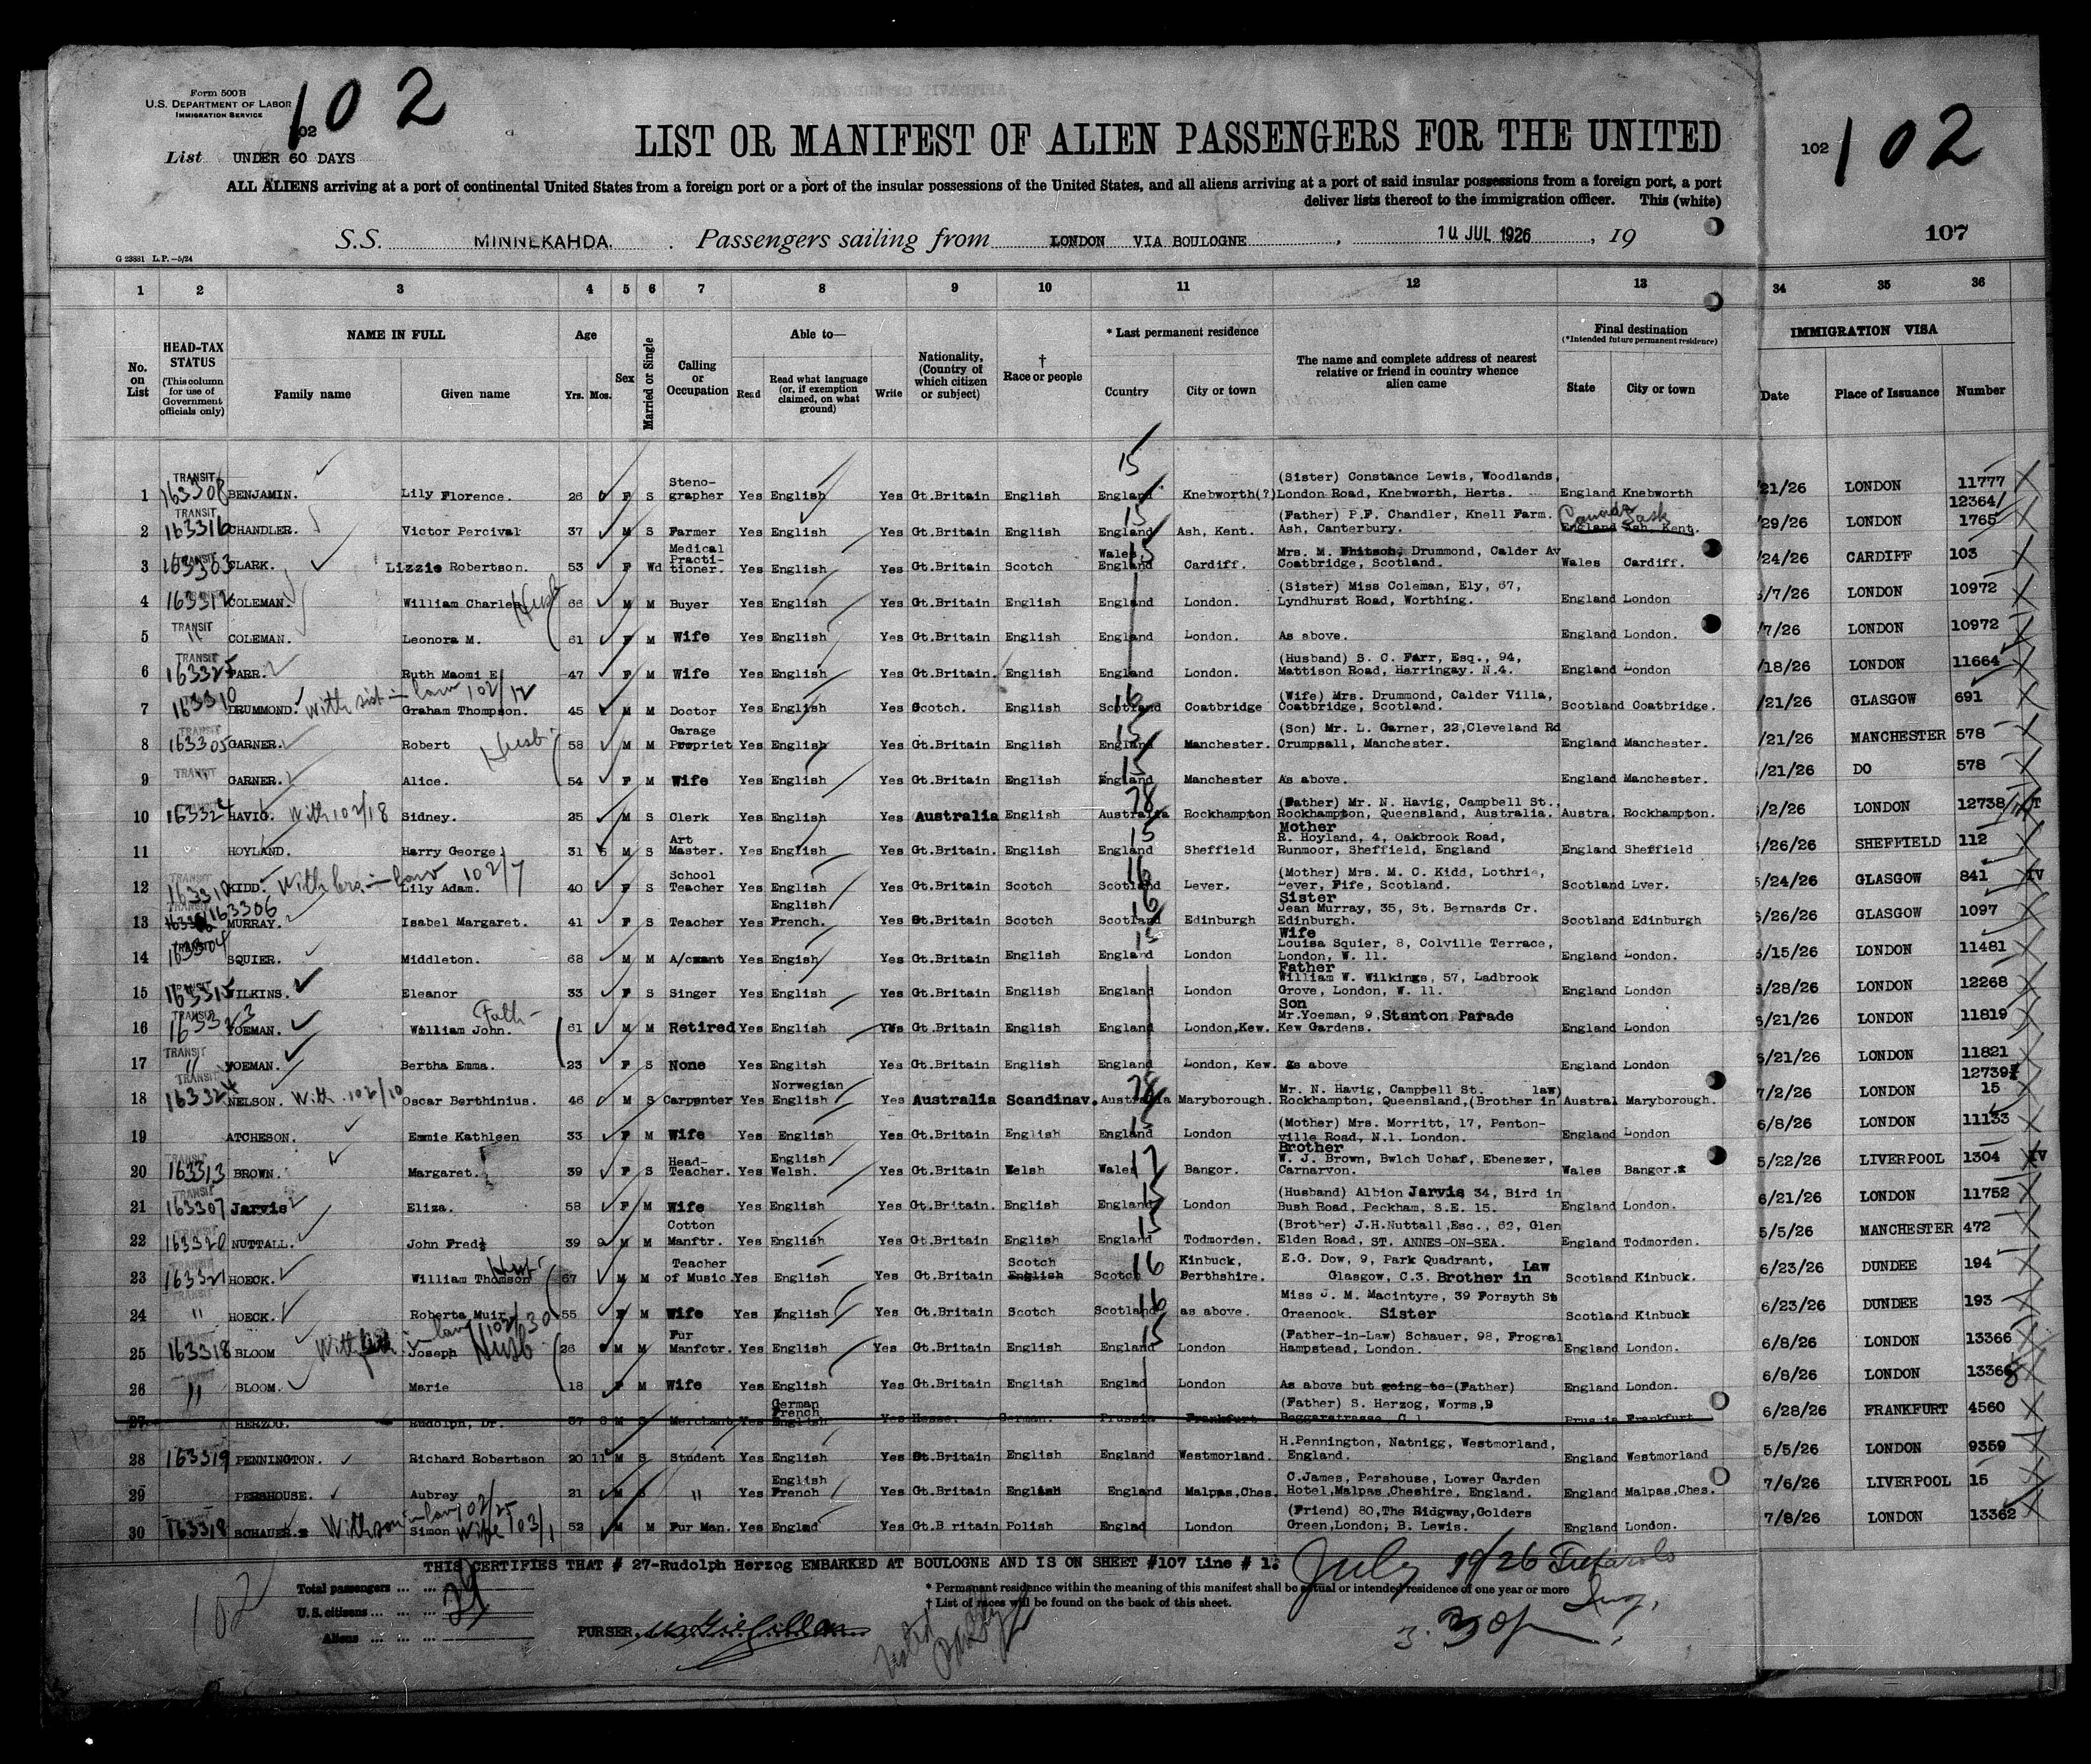 Form 500B
U.S. DEPARTMENT OF LABOR
IMMIGRATION SERVICE
102
102
List UNDER 60 DAYS
LIST OR MANIFEST OF ALIEN PASSENGERS FOR THE UNITED
102 102
ALL ALIENS arriving at a port of continental United States from a foreign port or a port of the insular possessions of the United States, and all aliens arriving at a port of said insular possessions from a foreign port, a port
deliver lists thereof to the immigration officer. This (white)
S.S. MINNEKAHDA. Passengers sailing from LONDON VIA BOULOGNE, 10 JUL 1926, 19
107
G 23881 L.P.—5/24
1 2 3 4 5 6 7 8 9 10 11 12 13 34 35 36
No. on List
HEAD-TAX STATUS (This column for use of Government officials only)
NAME IN FULL Family name Given name
Age Yrs. Mos.
Sex
Married or Single
Calling or Occupation
Able to— Read Read what language (or, if exemption claimed, on what ground) Write
Nationality, (Country of which citizen or subject)
† Race or people
* Last permanent residence Country City or town
The name and complete address of nearest relative or friend in country whence alien came
Final destination (*Intended future permanent residence) State City or town
IMMIGRATION VISA Date Place of Issuance Number
1 TRANSIT 163308 BENJAMIN. Lily Florence. 26 F S Steno-grapher Yes English Yes Gt.Britain English England 15 Knebworth(?) (Sister) Constance Lewis, Woodlands, London Road, Knebworth, Herts. England Knebworth 21/26 LONDON 11777
2 TRANSIT 163316 CHANDLER. Victor Percival 37 M S Farmer Yes English Yes Gt.Britain English England 15 Ash, Kent. (Father) P.F. Chandler, Knell Farm. Ash, Canterbury. England Ash, Kent. Canada Sask /29/26 LONDON 12364/ 1765
3 163303 CLARK. Lizzie Robertson. 53 F Wd Medical Practi-tioner. Yes English Yes Gt.Britain Scotch Wales, England 15 Cardiff. Mrs. M. Drummond, Calder Av Coatbridge, Scotland. Wales Cardiff. /24/26 CARDIFF 103
4 TRANSIT 163312 COLEMAN. William Charles Husb 66 M M Buyer Yes English Yes Gt.Britain English England London. (Sister) Miss Coleman, Ely, 67, Lyndhurst Road, Worthing. England London /7/26 LONDON 10972
5 TRANSIT " COLEMAN. Leonora M. 61 F M Wife Yes English Yes Gt.Britain English England London. As above. England London. /7/26 LONDON 10972
6 TRANSIT 163325 FARR. Ruth Maomi E 47 F M Wife Yes English Yes Gt.Britain. English England London. (Husband) S. C. Farr, Esq., 94, Mattison Road, Harringay. N.4. England London /18/26 LONDON 11664
7 163310 DRUMMOND. With sist-in law 102/12 Graham Thompson. 45 M M Doctor Yes English Yes Scotch. English Scotland 16 Coatbridge (Wife) Mrs. Drummond, Calder Villa, Coatbridge, Scotland. Scotland Coatbridge. /21/26 GLASGOW 691
8 TRANSIT 163305 GARNER. Robert Husb. 58 M M Garage Propriet Yes English Yes Gt.Britain English England 15 Manchester. (Son) Mr. L. Garner, 22,Cleveland Rd Crumpsall, Manchester. England Manchester. /21/26 MANCHESTER 578
9 TRANSIT GARNER. Alice. 54 F M Wife Yes English Yes Gt.Britain English England 15 Manchester As above. England Manchester. /21/26 DO 578
10 TRANSIT 163324 HAVIG. With 102/18 Sidney. 25 M S Clerk Yes English Yes Australia English Australia 78 Rockhampton (Father) Mr. N. Havig, Campbell St., Rockhampton, Queensland, Australia. Austra. Rockhampton. /2/26 LONDON 12738
11 HOYLAND. Harry George 31 5 M S Art Master. Yes English Yes Gt.Britain. English England 15 Sheffield Mother R. Hoyland, 4, Oakbrook Road, Runmoor, Sheffield, England England Sheffield 5/26/26 SHEFFIELD 112
12 TRANSIT KIDD. With bro-in-law 102/7 Lily Adam. 40 F S School Teacher Yes English Yes Gt.Britain Scotch Scotland 16 Lever. (Mother) Mrs. M. C. Kidd, Lothrie, Lever, Fife, Scotland. Scotland Lver. 5/24/26 GLASGOW 841
13 163306 MURRAY. Isabel Margaret. 41 F S Teacher Yes English French. Yes Gt.Britain Scotch Scotland 16 Edinburgh Sister Jean Murray, 35, St. Bernards Cr. Edinburgh. Scotland Edinburgh 5/26/26 GLASGOW 1097
14 163304 SQUIER. Middleton. 68 M M A/cmant Yes Engish Yes Gt.Britain English England 15 London Wife Louisa Squier, 8, Colville Terrace, London, W. 11. England London. 6/15/26 LONDON 11481
15 TRANSIT 163315 WILKINS. Eleanor 33 F S Singer Yes English Yes Gt.Britain English England London Father William W. Wilkings, 57, Ladbrook Grove, London, W. 11. England London 5/28/26 LONDON 12268
16 TRANSIT 163323 YOEMAN. William John. Fath- 61 M M Retired Yes English Yes Gt.Britain English England London,Kew. Son Mr.Yoeman, 9, Stanton Parade Kew Gardens. England London 5/21/26 LONDON 11819
17 TRANSIT " YOEMAN. Bertha Emma. 23 F S None Yes English Yes Gt.Britain English England London, Kew. as above England London 5/21/26 LONDON 11821
18 TRANSIT 163324 NELSON. With 102/10 Oscar Berthinius. 46 M S Carpenter Yes Norwegian English Yes Australia Scandinav. Australia 78 Maryborough. Mr. N. Havig, Campbell St. law) Rockhampton, Queensland,(Brother in Austral Maryborough. 7/2/26 LONDON 12739 15
19 ATCHESON. Emmie Kathleen 33 F M Wife Yes English Yes Gt.Britain English England 15 London (Mother) Mrs. Morritt, 17, Penton-ville Road, N.1. London. England London 6/8/26 LONDON 11133
20 TRANSIT 163313 BROWN. Margaret. 39 F S Head-Teacher. Yes English Welsh. Yes Gt.Britain Welsh Wales 17 Bangor. Brother W. J. Brown, Bwlch Uchaf, Ebenezer, Carnarvon. Wales Bangor. 5/22/26 LIVERPOOL 1304
21 TRANSIT 163307 Jarvis Eliza. 58 F M Wife Yes English Yes Gt.Britain. English England 15 London (Husband) Albion Jarvis 34, Bird in Bush Road, Peckham, S.E. 15. England London. 6/21/26 LONDON 11752
22 TRANSIT 163320 NUTTALL. John Fredk 39 9 M M Cotton Manftr. Yes English Yes Gt.Britain English England 15 Todmorden. (Brother) J.H.Nuttall,Esq., 62, Glen Elden Road, ST. ANNES-ON-SEA. England Todmorden. 5/5/26 MANCHESTER 472
23 TRANSIT 163321 HOECK. William Thomson Husb 67 M M Teacher of Music. Yes English Yes Gt.Britain Scotch English Scotch 16 Kinbuck, Perthshire. E.G. Dow, 9, Park Quadrant, Glasgow, C.3. Brother in Law Scotland Kinbuck. 6/23/26 DUNDEE 194
24 TRANSIT " HOECK. Roberta Muir 55 F M Wife Yes English Yes Gt.Britain Scotch Scotland 16 as above. Miss J. M. Macintyre, 39 Forsyth St Greenock. Sister Scotland Kinbuck 6/23/26 DUNDEE 193
25 163318 BLOOM With in law 102/30 Joseph Husb 26 M M Fur Manfctr. Yes English Yes Gt.Britain English England 15 London (Father-in-Law) Schauer, 98, Frognal Hampstead, London. England London. 6/8/26 LONDON 13366
26 TRANSIT " BLOOM. Marie 18 F M Wife Yes English Yes Gt.Britain English Englad London As above but going to (Father) England London. 6/8/26 LONDON 13366
27 HERZOG. Rudolph, Dr. 37 6 M S Merchant Yes German French English Yes Hesse. German. Prussia Frankfurt (Father) S. Herzog, Worms, Prussia Frankfurt 6/28/26 FRANKFURT 4560
28 163319 PENNINGTON. Richard Robertson 20 11 M S Student Yes English Yes Gt.Britain English England Westmorland. H.Pennington, Natnigg, Westmorland, England. England Westmorland 5/5/26 LONDON 9359
29 PERSHOUSE. Aubrey 21 M S " Yes English French Yes Gt.Britain English England Malpas,Ches. C.James, Pershouse, Lower Garden Hotel,Malpas,Cheshire, England. England Malpas,Ches. 7/6/26 LIVERPOOL 15
30 163318 SCHAUER. With son in law 102/25 Wife 103/1 Simon 52 M M Fur Man. Yes Englad Yes Gt.Britain Polish Englad London (Friend) 80,The Ridgway,Golders Green,London; B. Lewis. England London. 7/8/26 LONDON 13362
THIS CERTIFIES THAT # 27-Rudolph Herzog EMBARKED AT BOULOGNE AND IS ON SHEET #107 Line # 1.
102
Total passengers ... ...
U.S. citizens ... ...
Aliens ... ...
PURSER.
* Permanent residence within the meaning of this manifest shall be actual or intended residence of one year or more
† List of races will be found on the back of this sheet.
July 19/26
3.30p